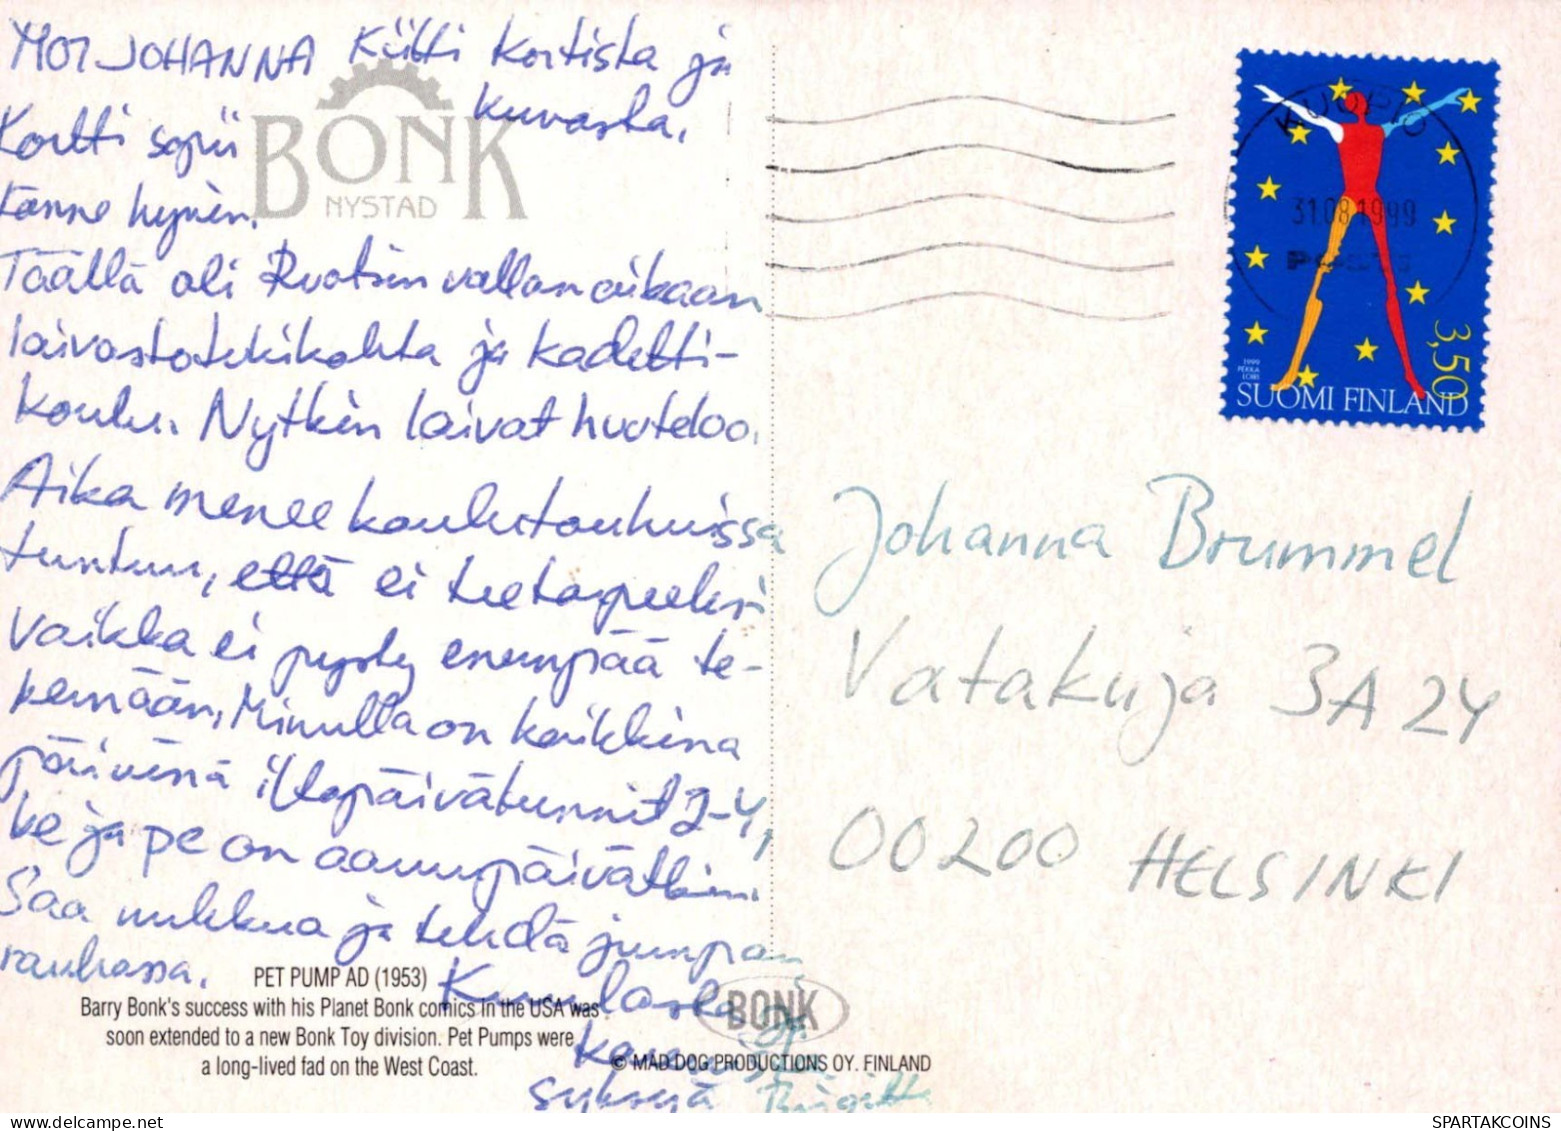 MOI JOHANNA Kiitti kortista ja
kuvasta.
Kortti sopii
tänne hyvin.
BONK
NYSTAD
Täällä oli Ruotsin vallan aikaan
laivastotukikohta ja kadetti-
koulu. Nytkin laivat huuteloo.
Aika menee koulutouhuissa
tuntuu, että ei tee tarpeeksi
vaikka ei pysty enempää te-
kemään. Minulla on kaikkina
päivinä iltapäivätunnit 2-4,
ke ja pe on aamupäivätkin.
Saa nukkua ja tehdä jumpan
rauhassa.
syksyä Birgitta
PET PUMP AD (1953)
Barry Bonk's success with his Planet Bonk comics in the USA was
soon extended to a new Bonk Toy division. Pet Pumps were
a long-lived fad on the West Coast.
BONK
© MAD DOG PRODUCTIONS OY. FINLAND
KUOPIO
31.08.1999
3,50
1999
PEKKA
LOIRI
SUOMI FINLAND
Johanna Brummel
Vatakuja 3A 24
00200 HELSINKI
SPARTAKCOINS